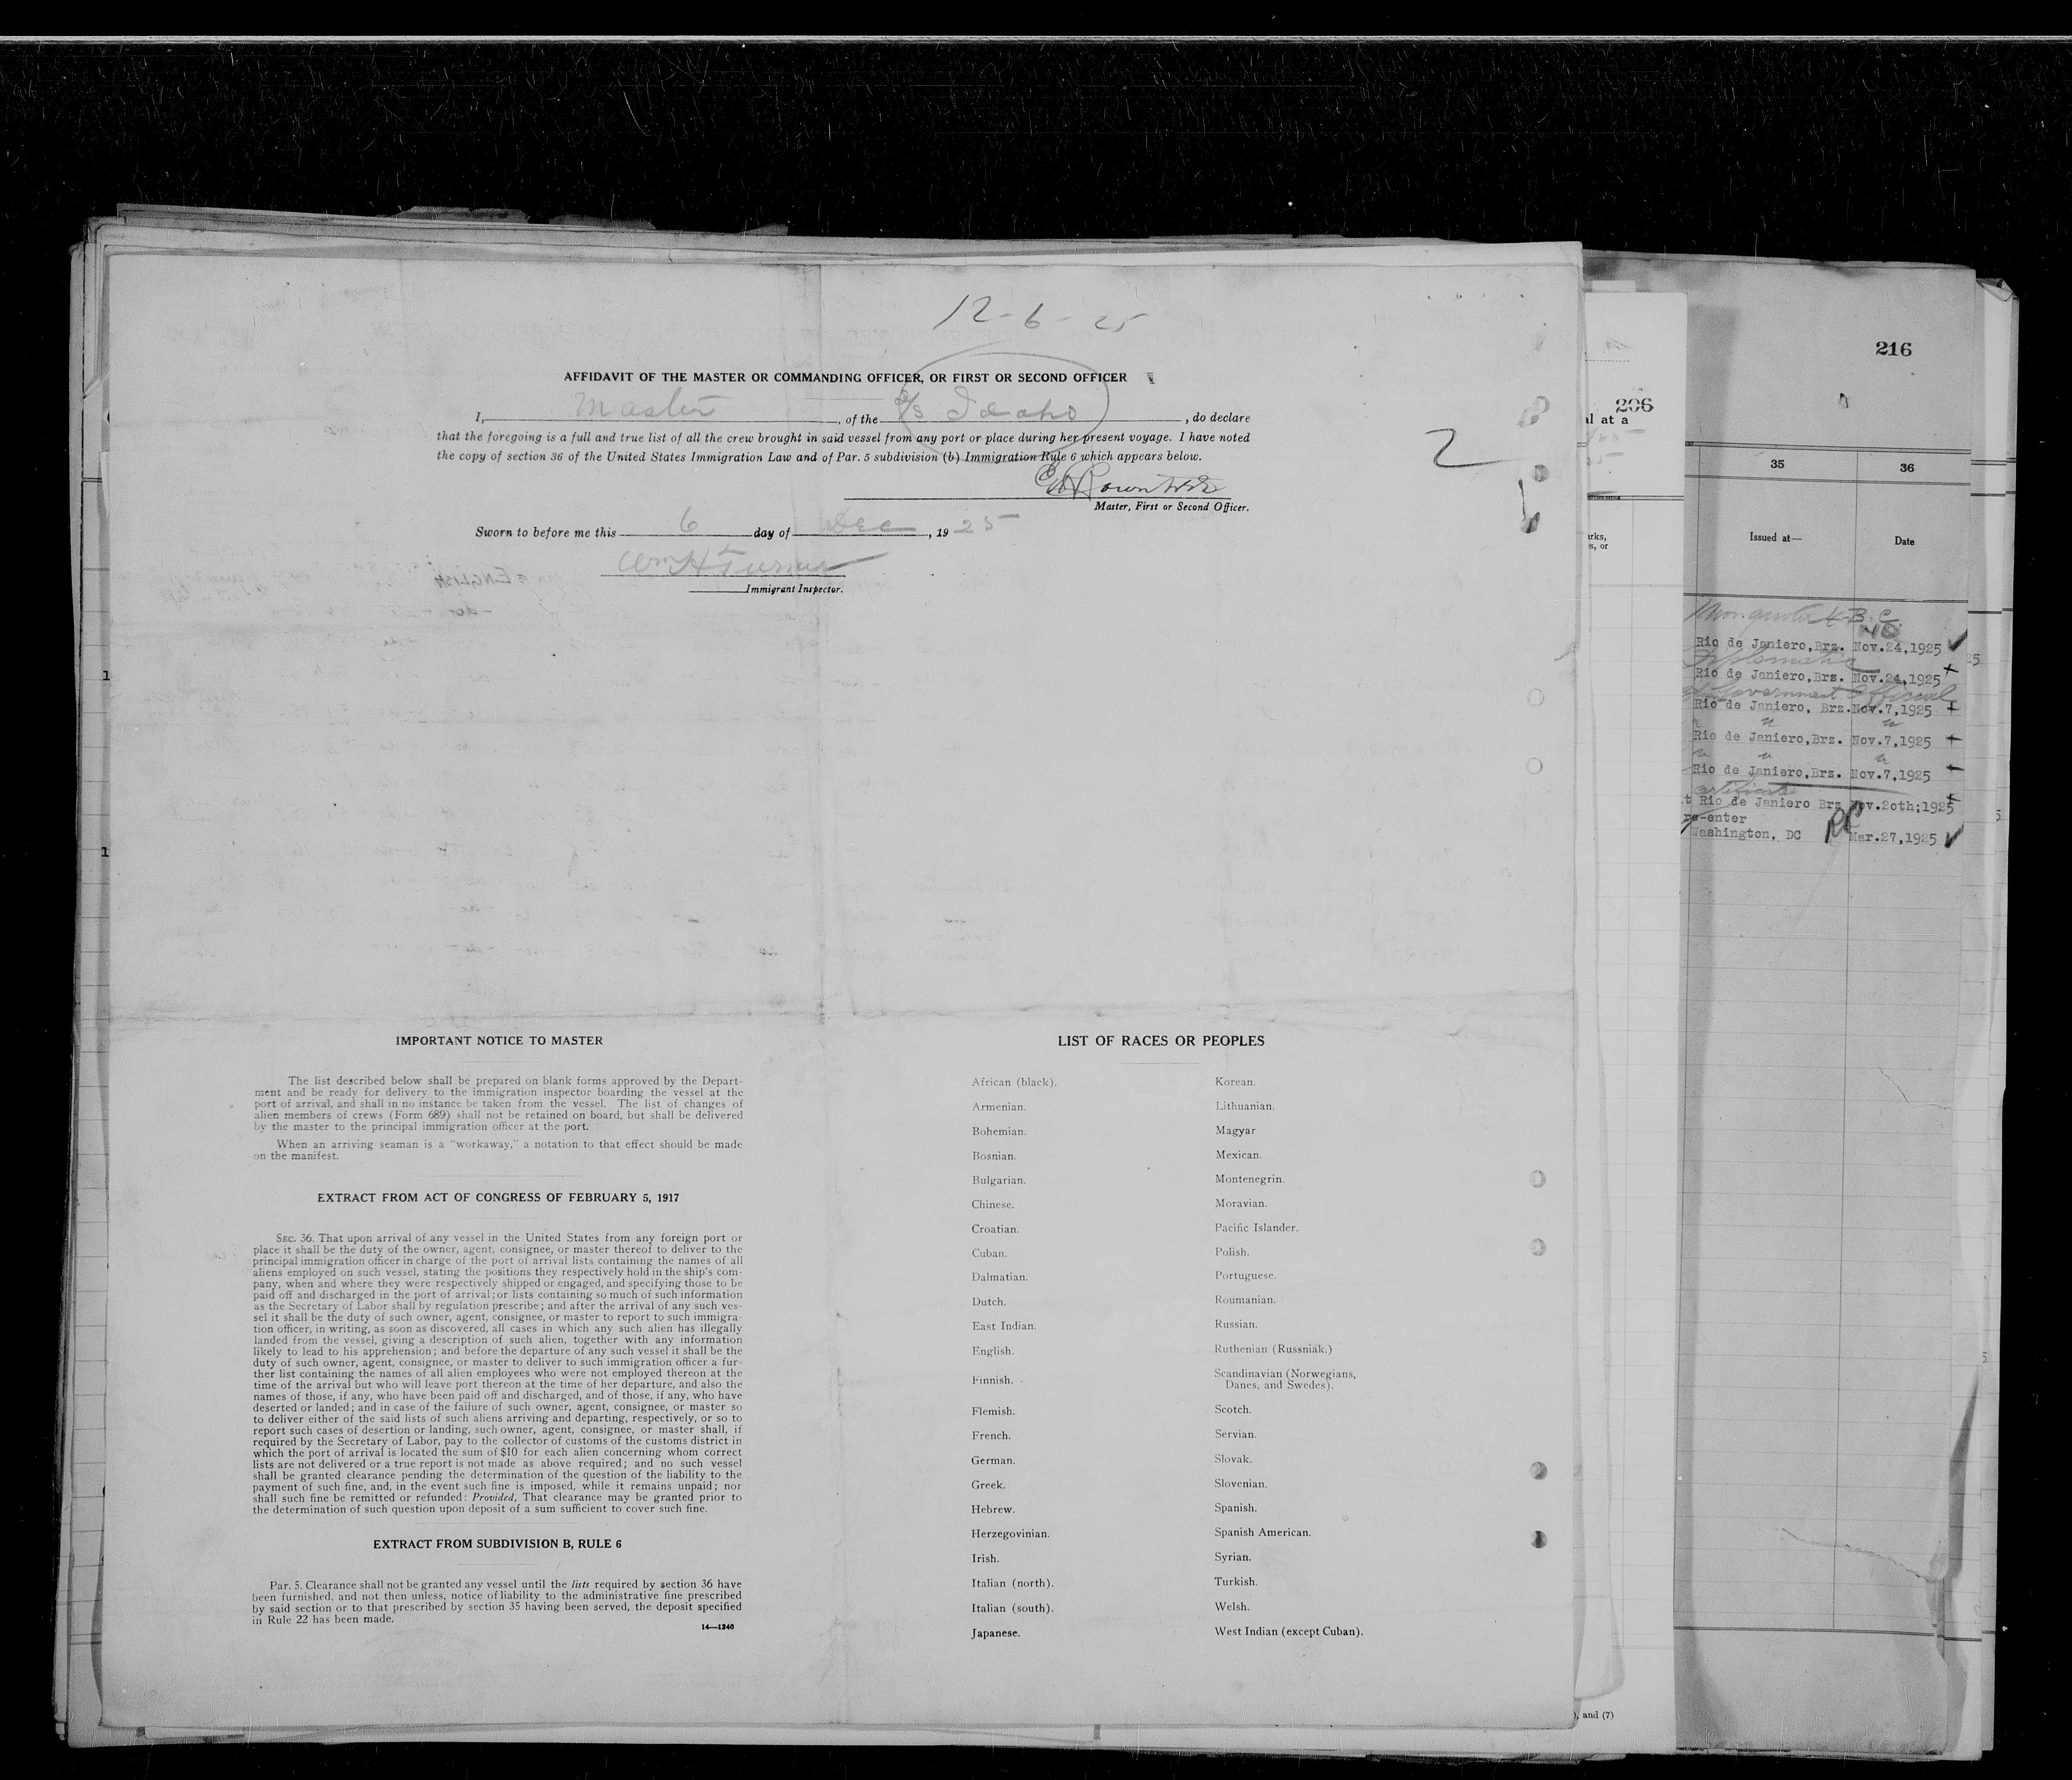 12-6-25
AFFIDAVIT OF THE MASTER OR COMMANDING OFFICER, OR FIRST OR SECOND OFFICER
I, Master, of the S/S Idaho, do declare
that the foregoing is a full and true list of all the crew brought in said vessel from any port or place during her present voyage. I have noted
the copy of section 36 of the United States Immigration Law and of Par. 5 subdivision (b) Immigration Rule 6 which appears below.
2
Master, First or Second Officer.
Sworn to before me this 6 day of Dec, 1925
Wm H Turner
Immigrant Inspector.
IMPORTANT NOTICE TO MASTER
The list described below shall be prepared on blank forms approved by the Depart-
ment and be ready for delivery to the immigration inspector boarding the vessel at the
port of arrival, and shall in no instance be taken from the vessel. The list of changes of
alien members of crews (Form 689) shall not be retained on board, but shall be delivered
by the master to the principal immigration officer at the port.
When an arriving seaman is a "workaway," a notation to that effect should be made
on the manifest.
EXTRACT FROM ACT OF CONGRESS OF FEBRUARY 5, 1917
SEC. 36. That upon arrival of any vessel in the United States from any foreign port or
place it shall be the duty of the owner, agent, consignee, or master thereof to deliver to the
principal immigration officer in charge of the port of arrival lists containing the names of all
aliens employed on such vessel, stating the positions they respectively hold in the ship's com-
pany, when and where they were respectively shipped or engaged, and specifying those to be
paid off and discharged in the port of arrival; or lists containing so much of such information
as the Secretary of Labor shall by regulation prescribe; and after the arrival of any such ves-
sel it shall be the duty of such owner, agent, consignee, or master to report to such immigra-
tion officer, in writing, as soon as discovered, all cases in which any such alien has illegally
landed from the vessel, giving a description of such alien, together with any information
likely to lead to his apprehension; and before the departure of any such vessel it shall be the
duty of such owner, agent, consignee, or master to deliver to such immigration officer a fur-
ther list containing the names of all alien employees who were not employed thereon at the
time of the arrival but who will leave port thereon at the time of her departure, and also the
names of those, if any, who have been paid off and discharged, and of those, if any, who have
deserted or landed; and in case of the failure of such owner, agent, consignee, or master so
to deliver either of the said lists of such aliens arriving and departing, respectively, or so to
report such cases of desertion or landing, such owner, agent, consignee, or master shall, if
required by the Secretary of Labor, pay to the collector of customs of the customs district in
which the port of arrival is located the sum of $10 for each alien concerning whom correct
lists are not delivered or a true report is not made as above required; and no such vessel
shall be granted clearance pending the determination of the question of the liability to the
payment of such fine, and, in the event such fine is imposed, while it remains unpaid; nor
shall such fine be remitted or refunded: Provided, That clearance may be granted prior to
the determination of such question upon deposit of a sum sufficient to cover such fine.
EXTRACT FROM SUBDIVISION B, RULE 6
Par. 5. Clearance shall not be granted any vessel until the lists required by section 36 have
been furnished, and not then unless, notice of liability to the administrative fine prescribed
by said section or to that prescribed by section 35 having been served, the deposit specified
in Rule 22 has been made.
14—1240
LIST OF RACES OR PEOPLES
African (black).
Armenian.
Bohemian.
Bosnian.
Bulgarian.
Chinese.
Croatian.
Cuban.
Dalmatian.
Dutch.
East Indian.
English.
Finnish.
Flemish.
French.
German.
Greek.
Hebrew.
Herzegovinian.
Irish.
Italian (north).
Italian (south).
Japanese.
Korean.
Lithuanian.
Magyar
Mexican.
Montenegrin.
Moravian.
Pacific Islander.
Polish.
Portuguese.
Roumanian.
Russian.
Ruthenian (Russniak.)
Scandinavian (Norwegians,
Danes, and Swedes).
Scotch.
Servian.
Slovak.
Slovenian.
Spanish.
Spanish American.
Syrian.
Turkish.
Welsh.
West Indian (except Cuban).
206
al at a
), and (7)
216
35 36
Issued at— Date
Rio de Janiero,Brz. Nov.24,1925
Diplomatic
Rio de Janiero,Brz. Nov.24,1925
Government Official
Rio de Janiero, Brz. Nov.7,1925
Rio de Janiero,Brz. Nov.7,1925
Rio de Janiero,Brz. Nov.7,1925
Rio de Janiero Brz Nov.20th;1925
re-enter
Washington, DC RP Mar.27,1925